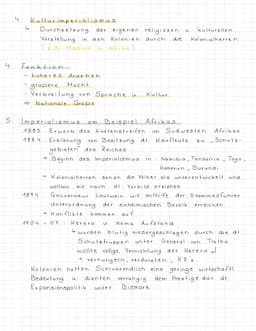 4. Kulturimperialismus
↳ Durchsetzung der eigenen religiösen u. kulturellen
Vorstellung in den Kolonien durch die Kolonialherren
(z.B. Mission in Afrika)
4. Funktion:
- höheres Ansehen
- größere Macht
- Verbreitung von Sprache u. Kultur
⇒ Nationale Größe
5. Imperialismus am Beispiel Afrikas
1883: Erwerb des Küstenstreifen im Südwesten Afrikas
1884: Erklärung von Besitzung dt. Kaufleute zu "Schutz-
gebieten" des Reiches
→ Beginn des Imperialismus in: Namibia, Tansania, Togo,
Kamerun, Burundi
→ Kolonialherren sahen die Völker als unterentwickelt und
wollten sie nach dt. Vorbild erziehen
1894: Gouverneur Leutwein will mithilfe der Stammesführer
Unterordnung der einheimischen Bevölk. erreichen
→ Konflikte kommen auf
1904-07: Herero u. Nama Aufstand
↳ wurden blutig niedergeschlagen durch die dt.
Schutztruppen unter General von Trotha
wollte völlige Vernichtung der Herero
→ verhungern, verdursten, KZs
Kolonien hatten schlussendlich eine geringe wirtschaftl.
Bedeutung u. dienten vorrangig dem Prestige der dt.
Expansionspolitik unter Bismark